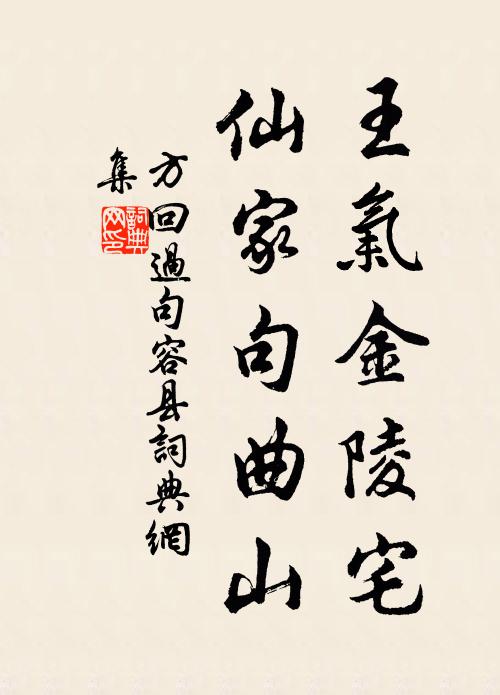 王氣金陵宅
仙家句曲山
方回過句容县詞典網
集
詞典網印